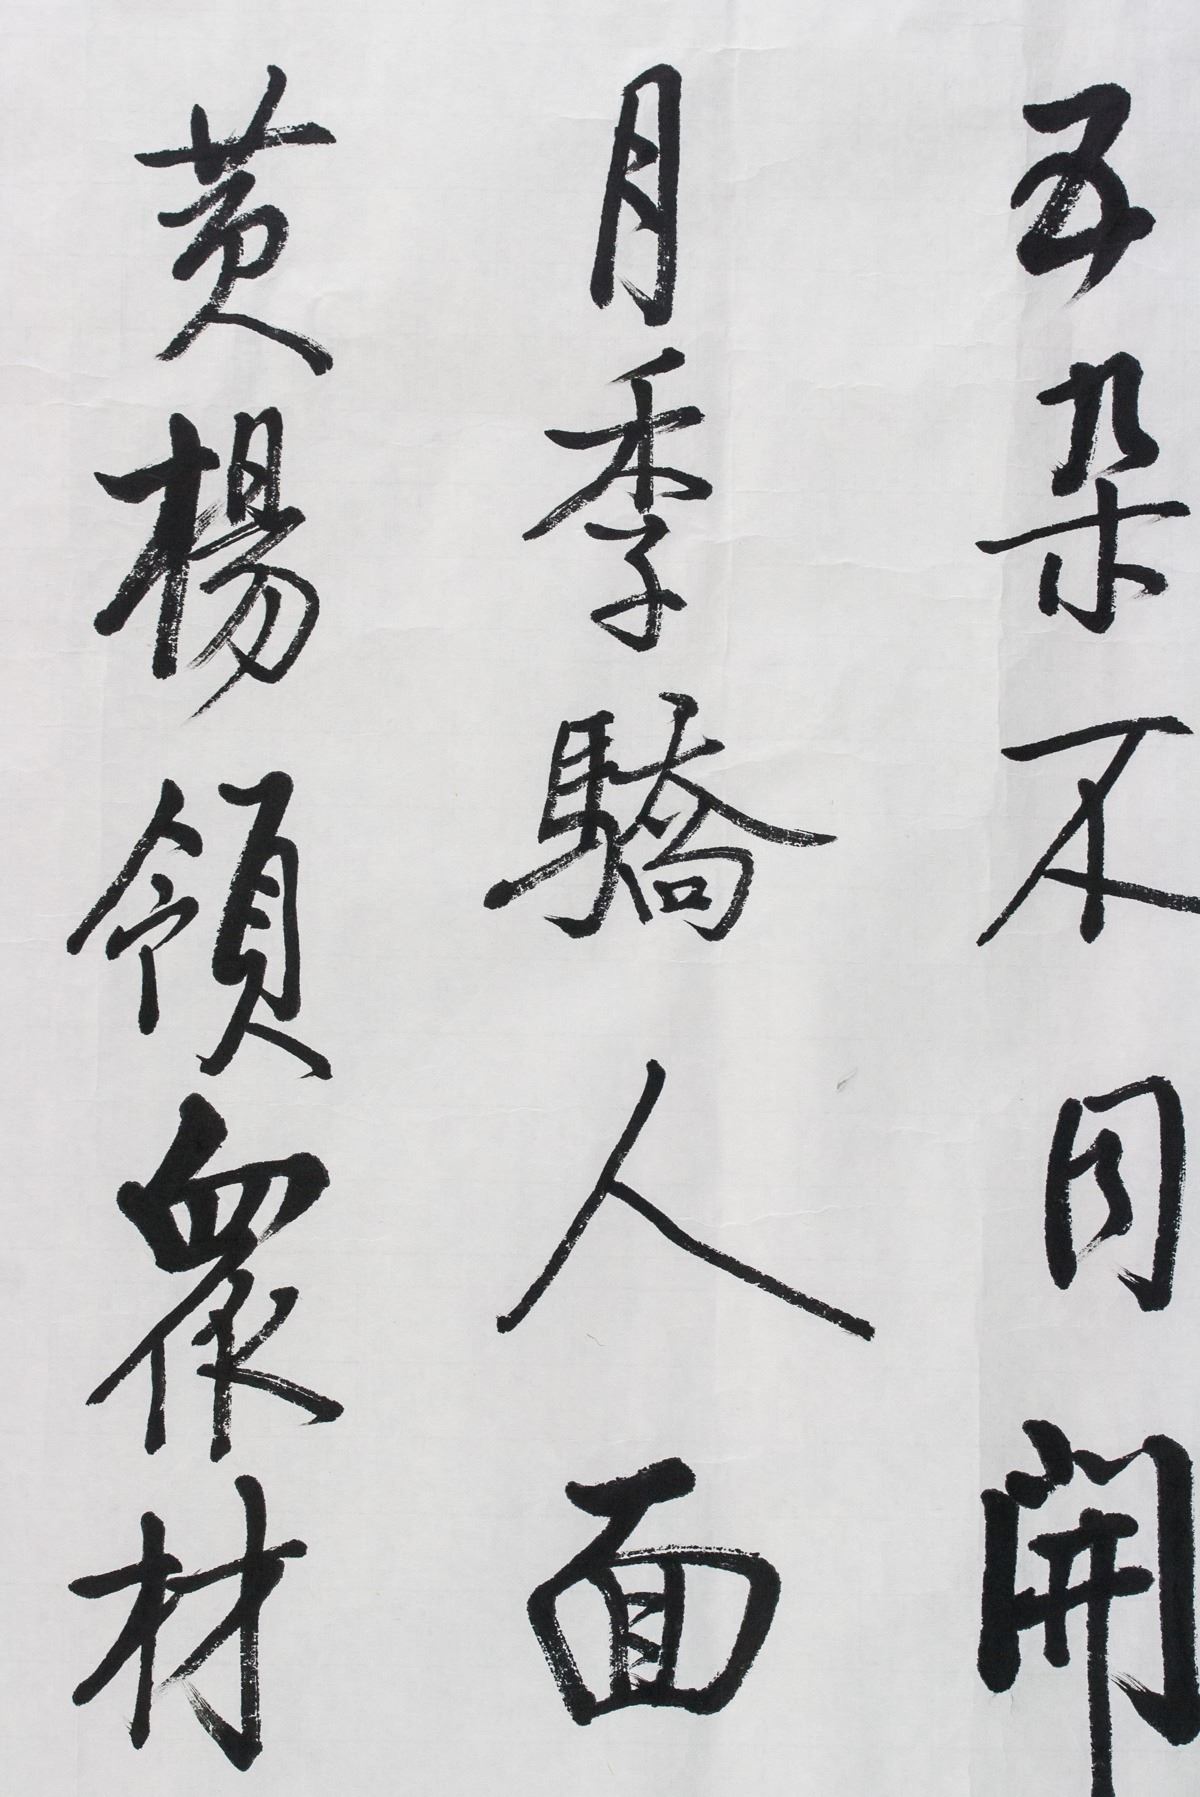 五朵不日開
月季驕人面
黄楊領衆材